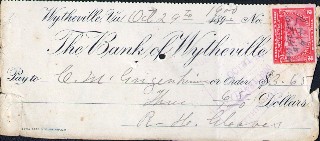 Wytheville, Va. Oct 29th 1900 No.
The Bank of Wytheville
Pay to C. M. or Order $3.65
Three 65/100 Dollars